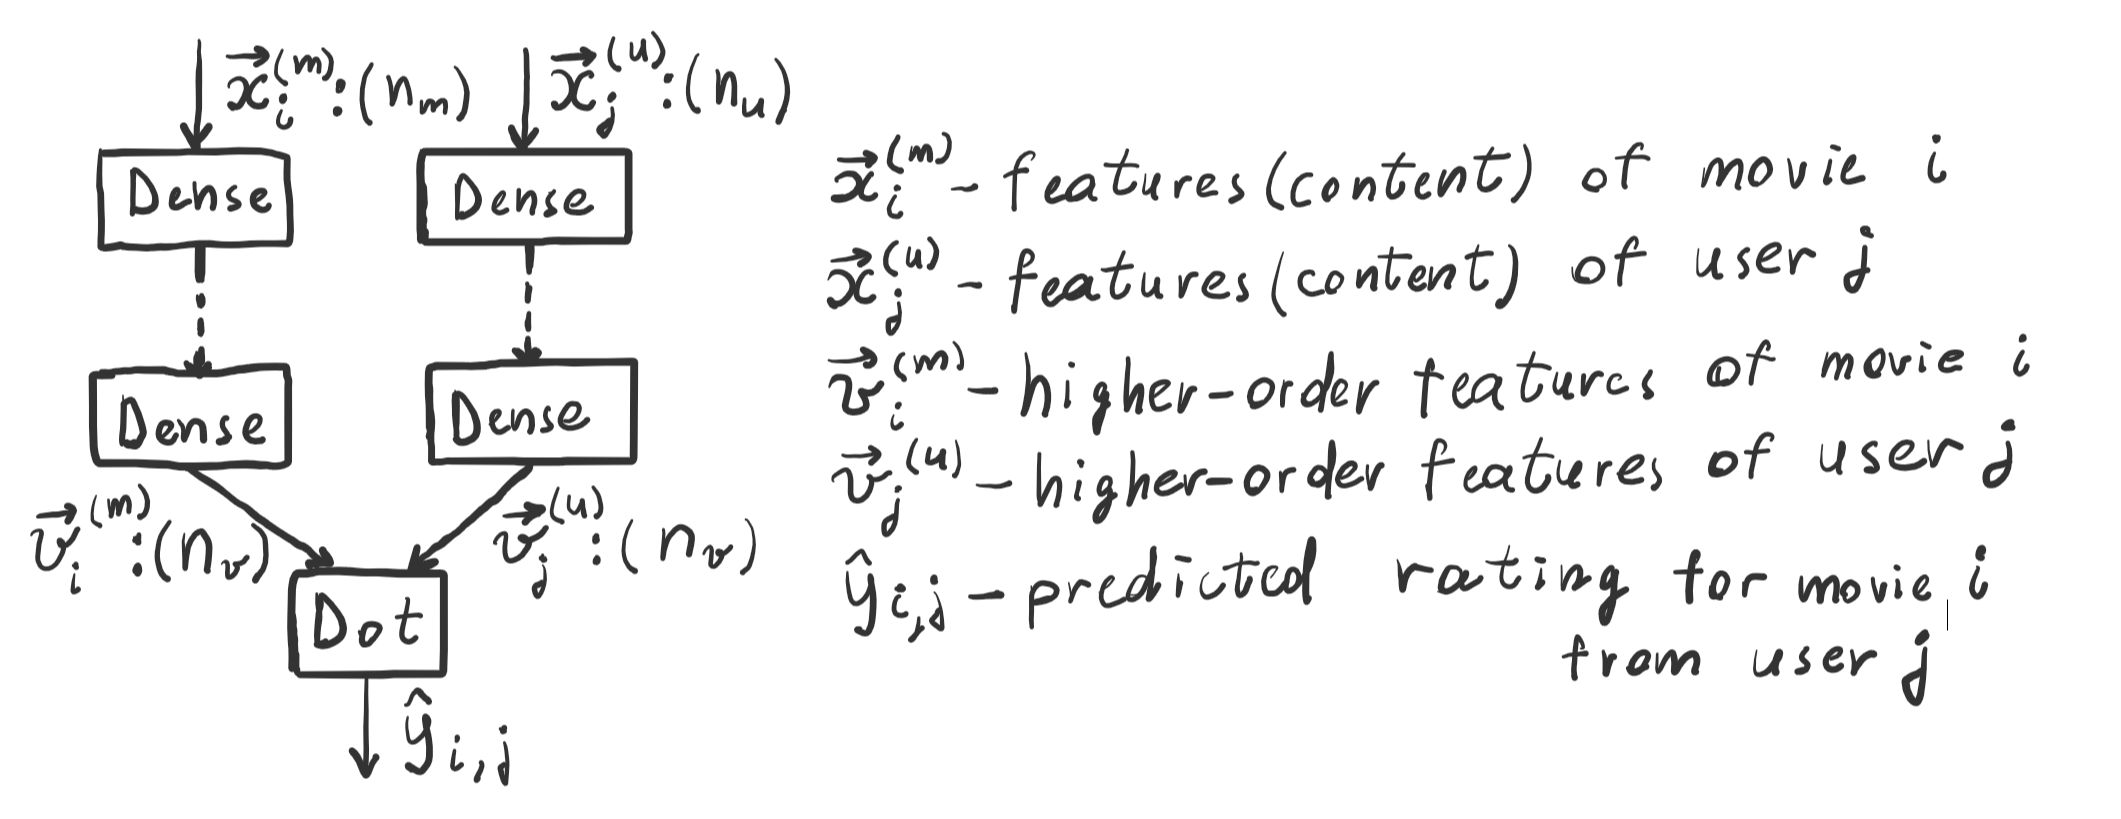 x⃗ᵢ⁽ᵐ⁾:(nₘ) x⃗ⱼ⁽ᵘ⁾:(nᵤ)
Dense Dense
Dense Dense
v⃗ᵢ⁽ᵐ⁾:(nᵥ) v⃗ⱼ⁽ᵘ⁾:(nᵥ)
Dot
ŷᵢ,ⱼ
x⃗ᵢ⁽ᵐ⁾ - features (content) of movie i
x⃗ⱼ⁽ᵘ⁾ - features (content) of user j
v⃗ᵢ⁽ᵐ⁾ - higher-order features of movie i
v⃗ⱼ⁽ᵘ⁾ - higher-order features of user j
ŷᵢ,ⱼ - predicted rating for movie i
from user j